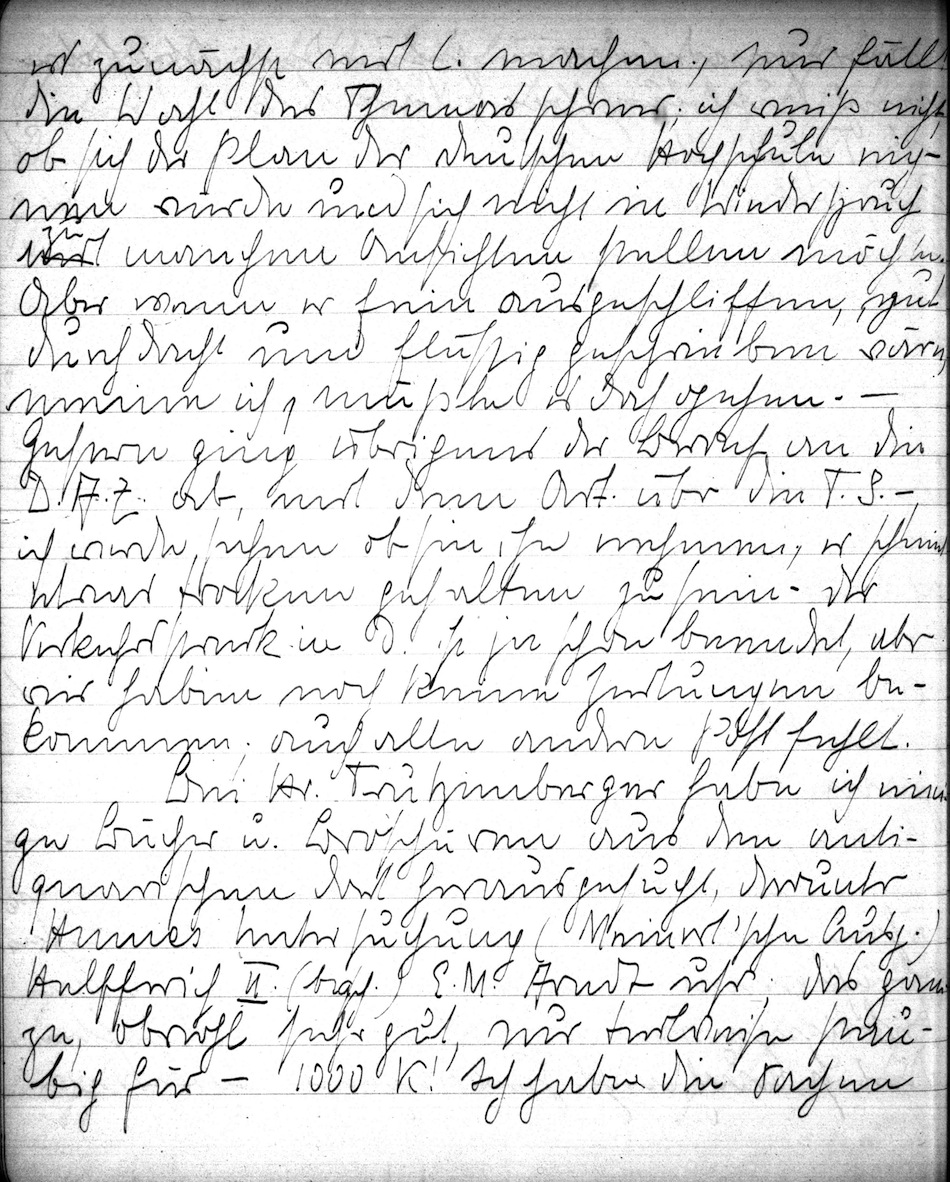 er zunächst mit L. machen, nur fällt
die Wahl des Themas schwer; ich weiß nicht
ob sich der Plan der deutschen Hochschule eig-
nen würde und sich nicht in Widerspruch
zu manchen Ansichten stellen möchte.
Aber wenn er fein ausgeschliffen, gut
durchdacht und flüssig geschrieben wäre,
meine ich, müßte es doch gehen. —
Gestern ging übrigens der Bericht an die
D.A.Z. ab, mit dem Art. über die T.S. –
ich werde sehen ob sie ihn nehmen, er scheint
etwas trocken gehalten zu sein – der
Verkehrsstreik in D. ist ja schon beendet, aber
wir haben noch keine Zeitungen be-
kommen. auch alle andere Post fehlt.
Bei Hr. Trutzenberger habe ich eini-
ge Bücher u. Broschüren aus dem anti-
quarischen dort herausgesucht, darunter
Humes Untersuchung (Meiner'sche Ausg.)
Helfferich II. (brosch.) E.M. Arndt usw. das gan-
ze, obwohl sehr gut, nur teilweise stau-
big für – 1000 K! Ich habe die Sachen